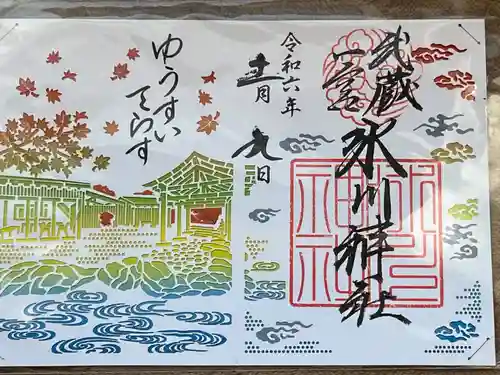 武蔵
一宮
氷川神社
令和六年
十一月
九日
ゆうすい
てらす